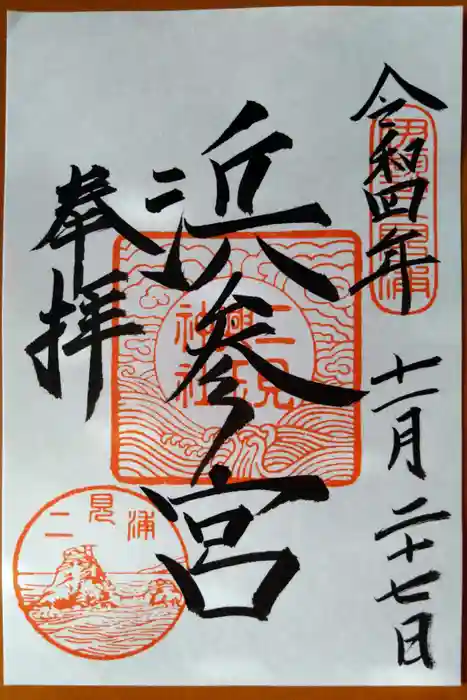 令和四年
十一月二十七日
浜参宮
奉拝
伊勢二見浦
二見
興玉
神社
二見浦